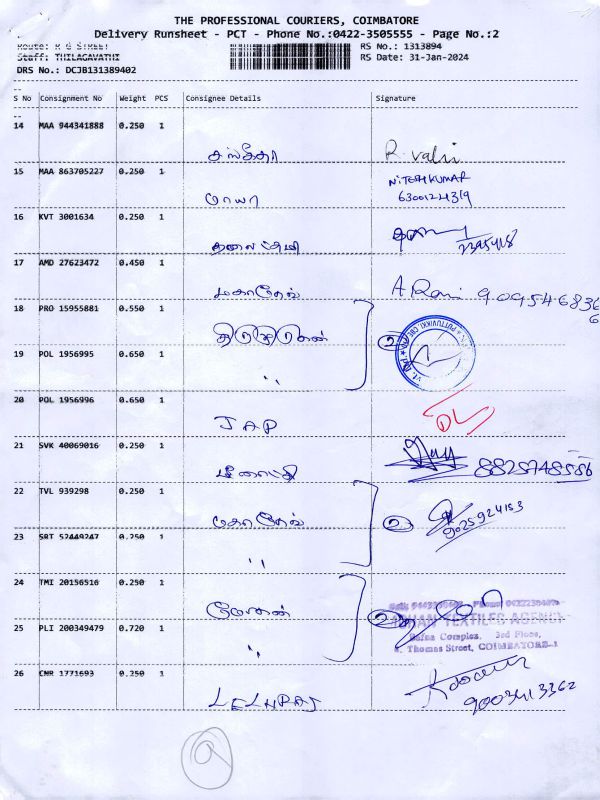 THE PROFESSIONAL COURIERS, COIMBATORE
Delivery Runsheet - PCT - Phone No.:0422-3505555 - Page No.:2
Route: R G STREET
RS No.: 1313894
Staff: THILAGAVATHI
RS Date: 31-Jan-2024
DRS No.: DCJB131389402
S No Consignment No Weight PCS Consignee Details Signature
14 MAA 944341888 0.250 1
R. valli
15 MAA 863705227 0.250 1
NITESH KUMAR
மாயா 6300124319
16 KVT 3001634 0.250 1
17 AMD 27623472 0.450 1
மகாதேவ் A Rani
18 PRO 15955881 0.550 1
2
19 POL 1956995 0.650 1
"
20 POL 1956996 0.650 1
JAP DL
21 SVK 40069016 0.250 1
8825748556
22 TVL 939298 0.250 1
2 9025924153
23 SRT 52449247 0.250 1
"
24 TMI 20156516 0.250 1
மோகன் 2
TEXTILES AGENCY
25 PLI 200349479 0.720 1
Complex, 3rd Floor,
" Thomas Street, COIMBATORE-1
26 CNR 1771693 0.250 1
9003413362